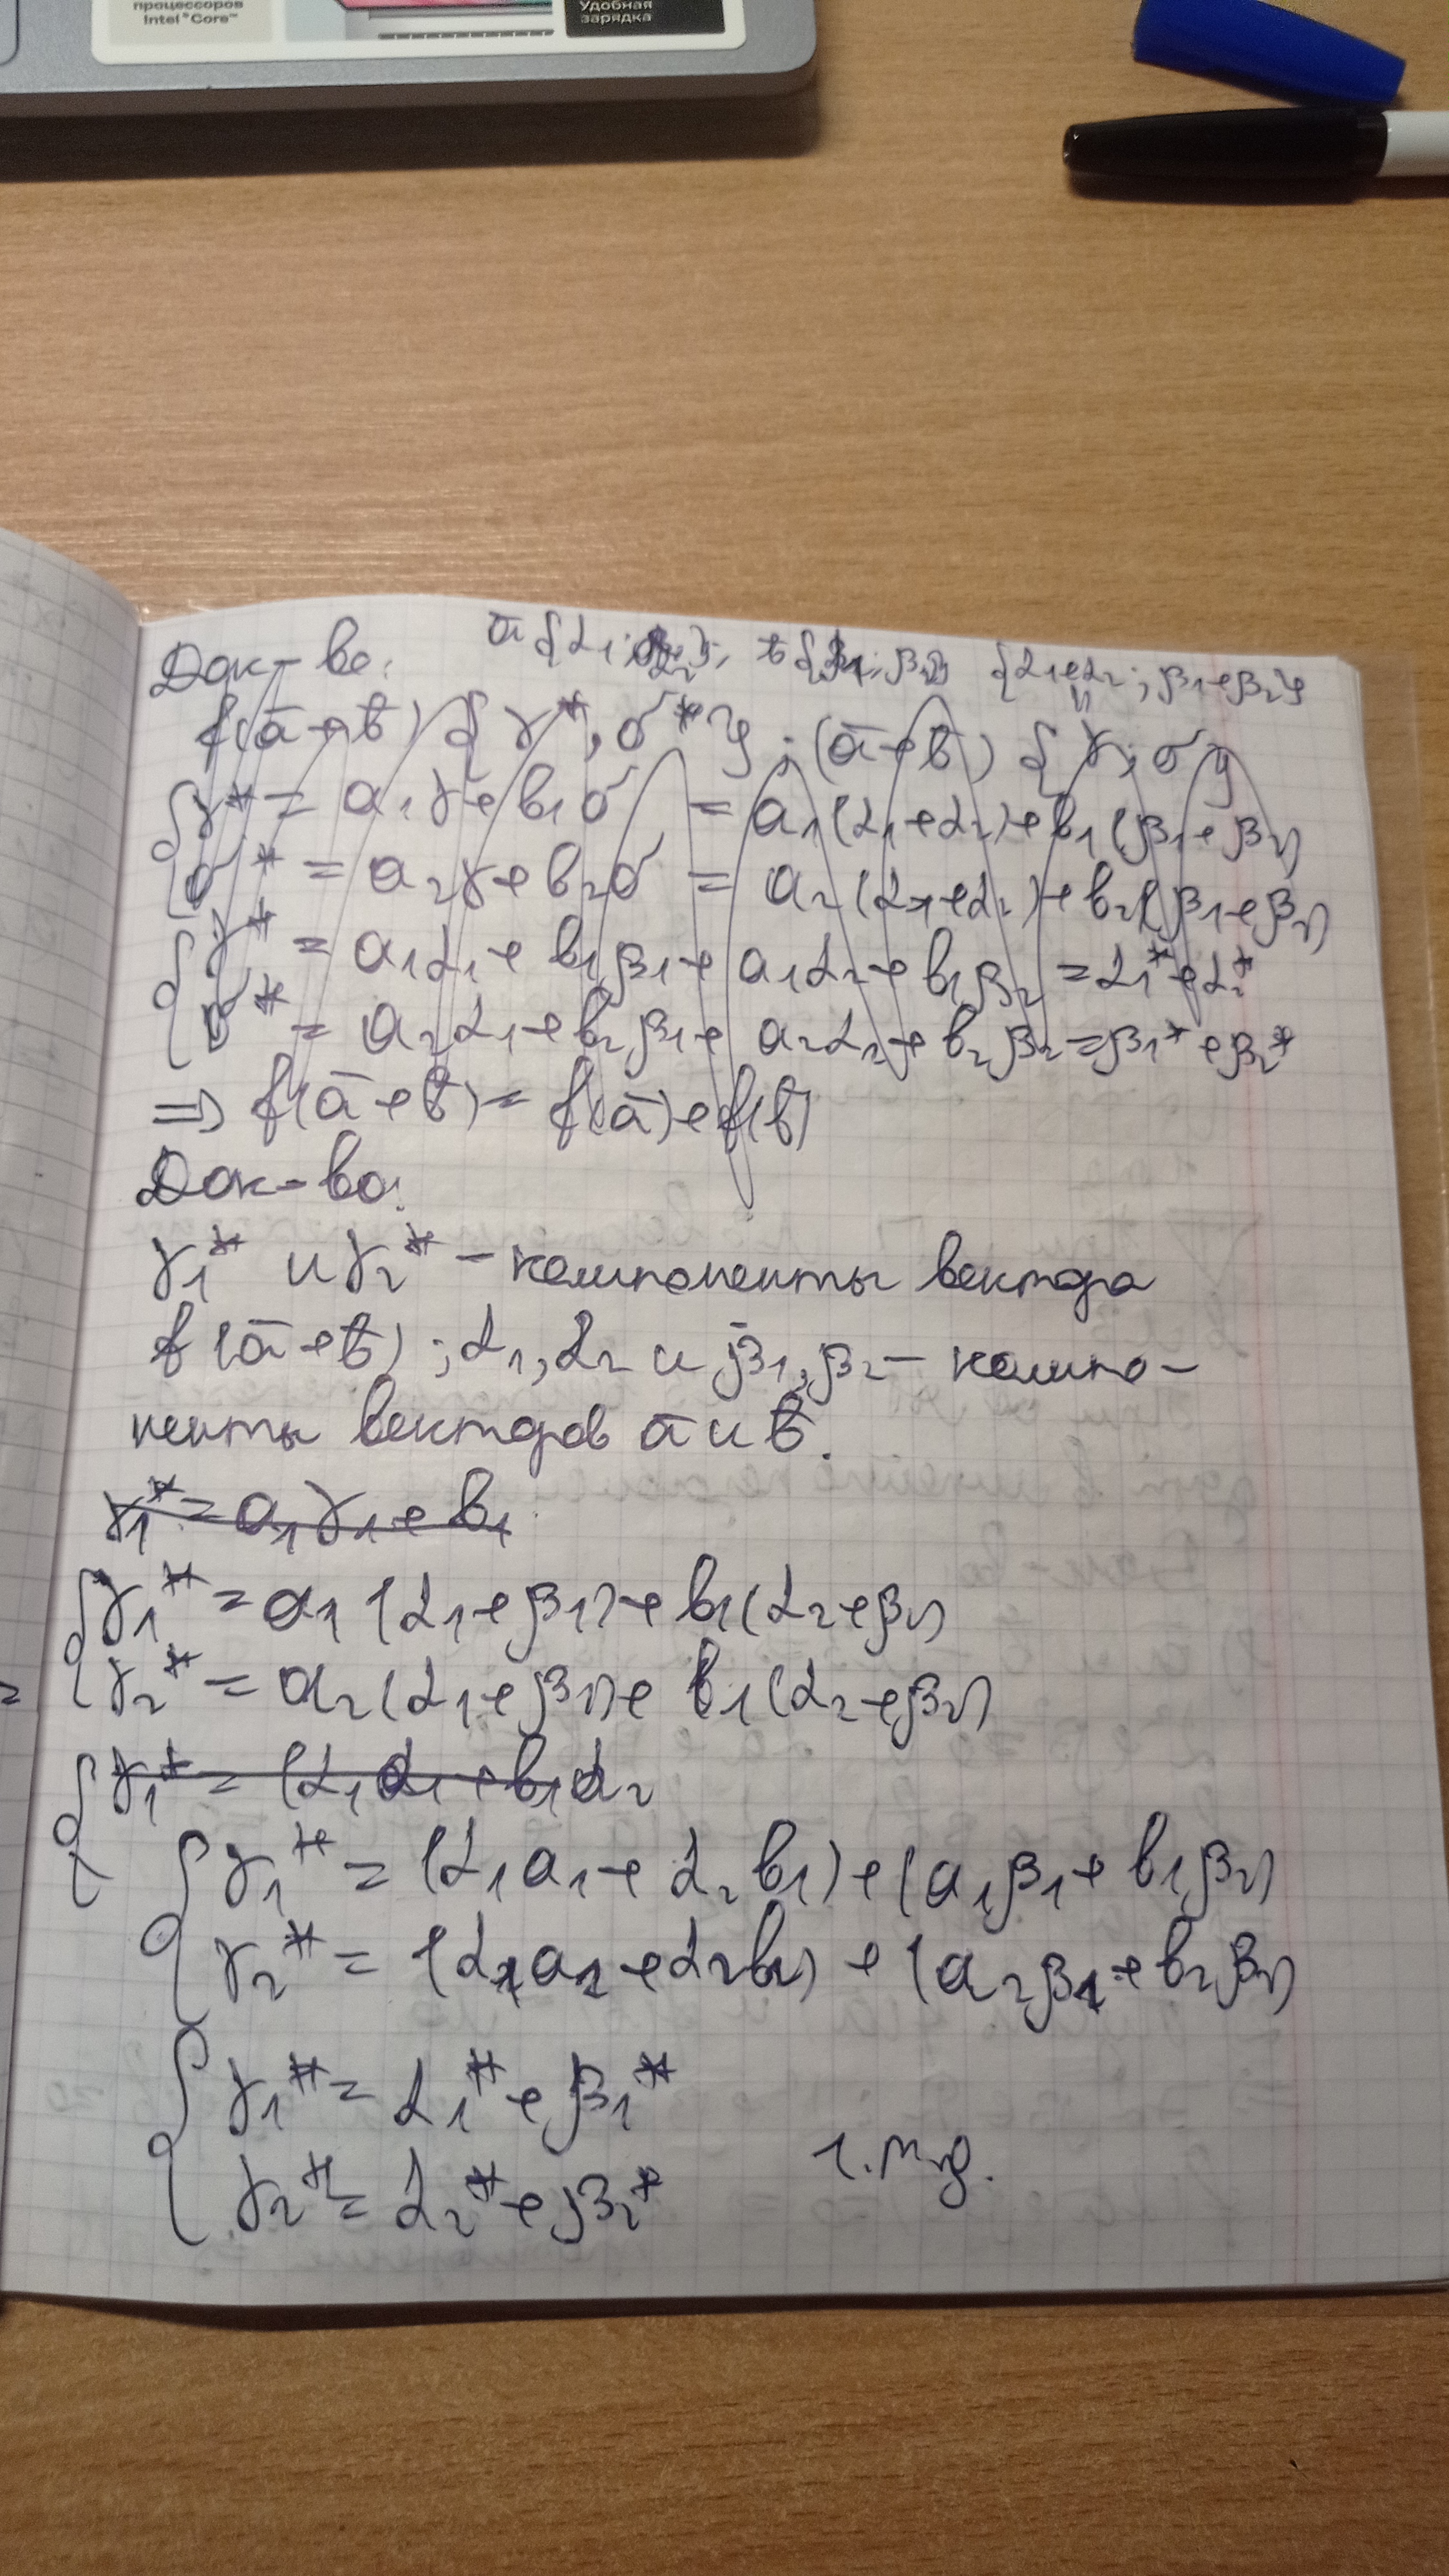 процессоров
Intel® Core™
Удобная
зарядка
Док-во:
ā {α₁; α₂}; b̄ {β₁; β₂} {α₁+α₂; β₁+β₂}
f(ā+b̄) {γ*; σ*}; (ā+b̄) {γ; σ}
γ* = a₁γ+b₁σ = a₁(α₁+α₂)+b₁(β₁+β₂)
σ* = a₂γ+b₂σ = a₂(α₁+α₂)+b₂(β₁+β₂)
γ* = a₁α₁+b₁β₁+a₁α₂+b₁β₂ = α₁*+α₂*
σ* = a₂α₁+b₂β₁+a₂α₂+b₂β₂ = β₁*+β₂*
⇒ f(ā+b̄) = f(ā)+f(b̄)
Док-во:
γ₁* и γ₂* – компоненты вектора
f(ā+b̄); α₁, α₂ и β₁, β₂ – компо-
ненты векторов ā и b̄.
γ₁* = a₁γ₁+b₁
γ₁* = a₁(α₁+β₁)+b₁(α₂+β₂)
γ₂* = a₂(α₁+β₁)+b₁(α₂+β₂)
γ₁* = (α₁a₁+b₁α₂
γ₁* = (α₁a₁+α₂b₁)+(a₁β₁+b₁β₂)
γ₂* = (α₁a₂+α₂b₂)+(a₂β₁+b₂β₂)
γ₁* = α₁*+β₁*
γ₂* = α₂*+β₂*
ч.т.д.